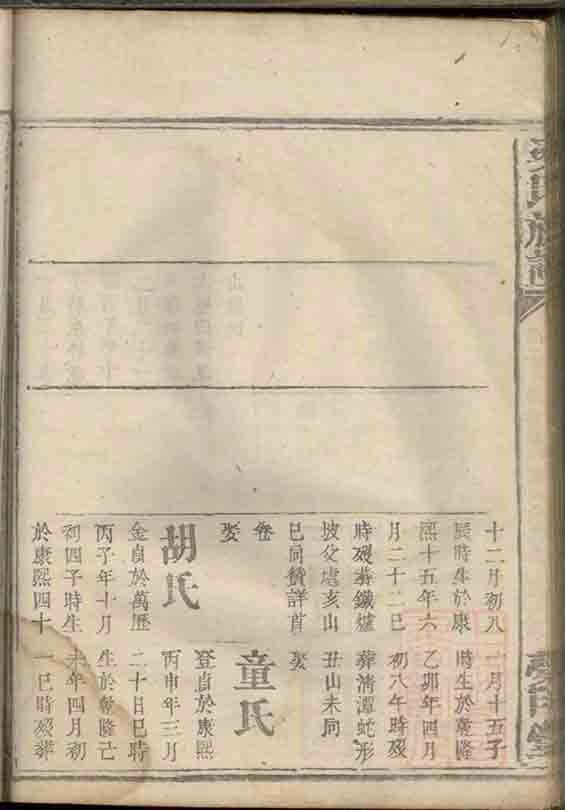 氏族譜
十二月初八
辰時生於康
熙十五年六
月二十二巳
時歿葬鐵爐
坡父墟亥山
巳向贊詳首
卷
娶
胡氏
金貞於萬歷
丙子年十月
初四子時生
於康熙四十
一月十五子
時生於乾隆
乙卯年四月
初八午時歿
葬清潭蛇形
丑山未向
娶
童氏
登貞於康熙
丙申年三月
二十日巳時
生於乾隆己
未年四月初
一巳時歿葬